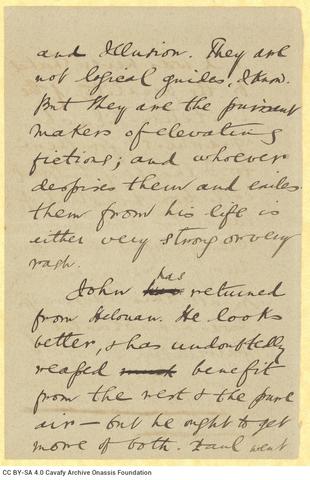 and Illusion. They are
not logical guides, I know.
But they are the puissant
makers of elevating
fictions; and whoever
despises them and exiles
them from his life is
either very strong or very
rash.
John has returned
from Helouan. He looks
better, & has undoubtedly
reaped much benefit
from the rest & the pure
air — but he ought to get
more of both. Paul went
CC BY-SA 4.0 Cavafy Archive Onassis Foundation